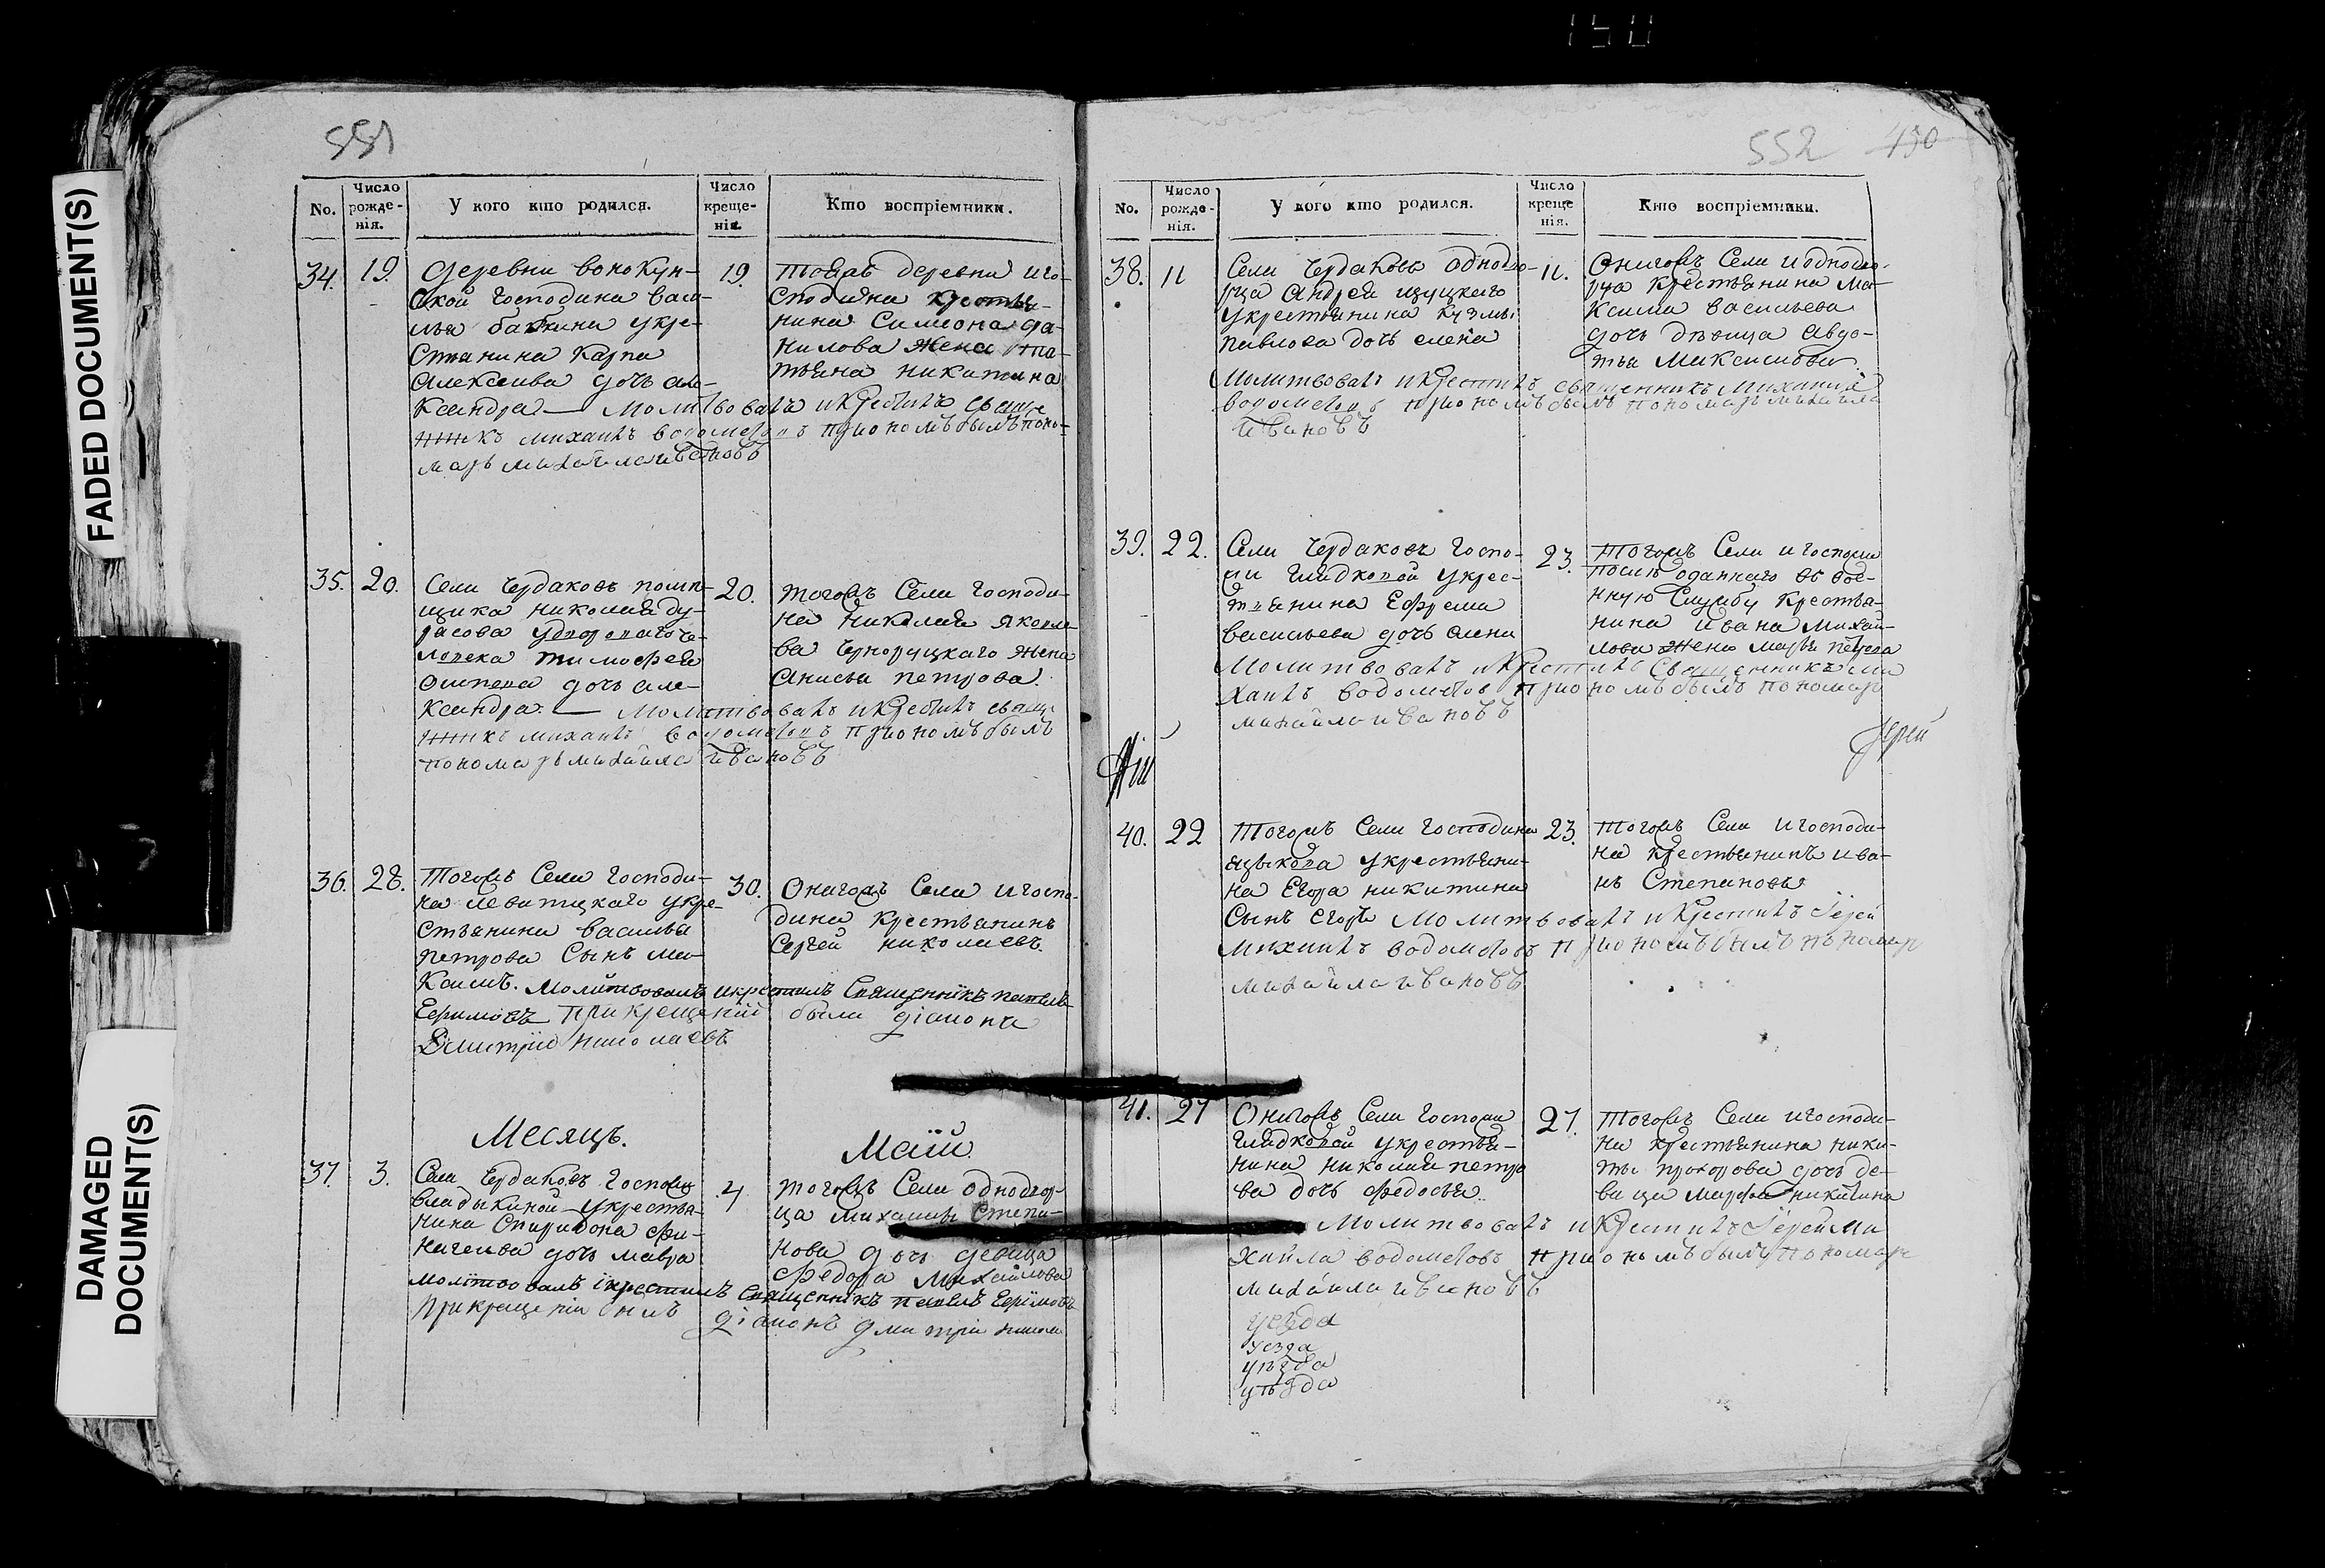 FADED DOCUMENT(S)
DAMAGED
DOCUMENT(S)
551
No.
Число рожде-нія.
У кого кто родился.
Число креще-нія.
Кто воспріемники.
34. 19.
деревни
ской господина васи-
лья укре-
стьянина карпа
алексеева дочь але-
ксандра — молитвовалъ икрестилъ свяще
нникъ михаилъ водометовъ приономъ былъ поно-
марь михаила ивановъ
19.
тояже деревни иго-
сподина крестья-
нина Симиона да-
нилова жена
никитина
35. 20.
Села Чердаковъ помѣ-
щика николая ду-
расова удворонаго че-
ловека тимофея
осипова дочь але-
ксандра — молитвовалъ икрестилъ свяще
нникъ михаилъ водометовъ приономъ былъ
пономарь михаила ивановъ
20.
тогожъ Села господи-
на николая яковле-
ва Черноруцкаго жена
анисья петрова
36. 28.
тогожъ Села господи-
на левитцкаго укре-
стьянина василья
петрова Сынъ ма-
ксимъ. молитвовалъ икрестилъ Священникъ павелъ
Ефимовъ при крещеніи были діаконъ
Дмитрій николаевъ
30.
Оногожъ Села игоспо-
дина крестьянинъ
Сергей николаевъ.
Месяцъ. Маій.
37. 3.
Села Чердаковъ госпожи
владыкиной укрестья-
нина Спиридона
дочь мавра
молитвовалъ ікрестилъ Священникъ павелъ Ефимовъ
при крещеніи былъ діаконъ дмитрій никола
4
тогожъ Села однодвор-
ца михаила Степа-
нова дочь девица
федора михайлова
552 450
No.
Число рожде-нія.
У кого кто родился.
Число креще нія.
Кто воспріемники.
38. 11
Села Чердаковъ однодво-
рца андрея
укрестьянина кузмы
павлова дочь елена
молитвовалъ икрестилъ священникъ михаилъ
водометовъ приономъ былъ пономарь михаила
ивановъ
11.
Оногожъ Села иоднодво-
рца крестьянина ма-
ксима васильева
дочь дѣвица авдо-
тья максимова
39. 22.
Села Чердаковъ госпо-
жи гладковой укрес-
тьянина Ефрема
васильева дочь елена
молитвовалъ икрестилъ Священникъ ми
хаилъ водометовъ приономъ былъ пономарь
михаила ивановъ
23.
тогожъ Села игоспожи
послѣ оданнаго въ вое-
нную Службу крестья-
нина ивана михай-
лова жена марья петрова
Іерей
40. 22
тогожъ Села господина
языкова укрестьяни-
на Егора никитина
Сынъ егоръ молитвовалъ икрестилъ Іерей
михаилъ водометовъ приономъ былъ пономарь
михаила ивановъ
23.
тогожъ Села игосподи-
на крестьянинъ ива-
нъ Степановъ
41. 27
Оногожъ Села госпожи
гладковой укрестья-
нина николая петро
ва дочь федосья.
молитвовалъ икрестилъ Іерей ми
хайла водометовъ приономъ былъ пономарь
михаила ивановъ
27.
тогожъ Села игосподи-
на крестьянина ники-
ты прохорова дочь де-
вица марфа никитина
уезда
уезда
уѣзда
уѣзда